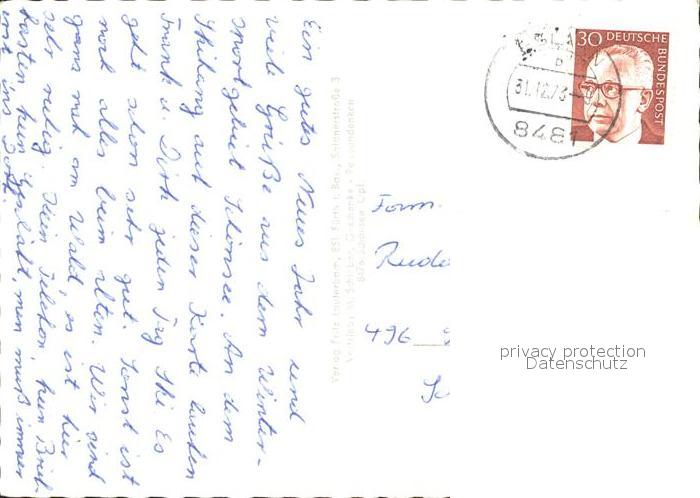 Ein gutes Neues Jahr und
viele Grüße aus dem Winter-
sportgebiet Schönsee. An dem
Skihang auf dieser Karte laufen
Frank u. Dirk jeden Tag Ski Es
geht schon sehr gut. Sonst ist
noch alles beim alten. Wir sind
ganz nah am Wald, es ist hier
sehr ruhig. Kein Telefon, kein Brief-
kasten, kein Geschäft, man muß immer
erst ins Dorf.
Verlag Fritz Lauterbach, 851 Fürth i. Bay.,
30 DEUTSCHE
BUNDESPOST
31.12.73
8481
Fam.
Rudo
496
privacy protection
Datenschutz